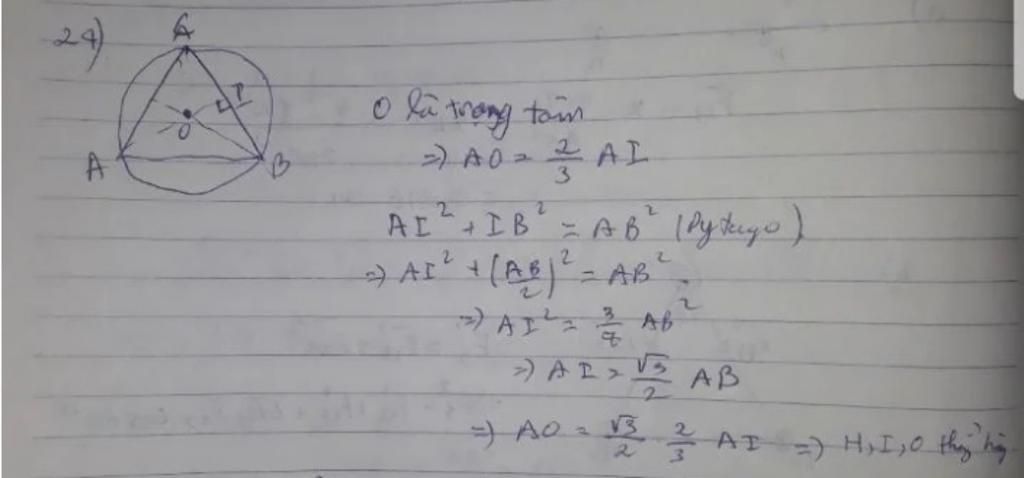 24)
C
I
O
A
B
O là trọng tâm
=) AO = 2/3 AI
AI² + IB² = AB² (Pytago)
=) AI² + (AB/2)² = AB²
=) AI² = 3/4 AB²
=) AI = √3/2 AB
=) AO = √3/2 2/3 AI =) H, I, O thẳng hàng